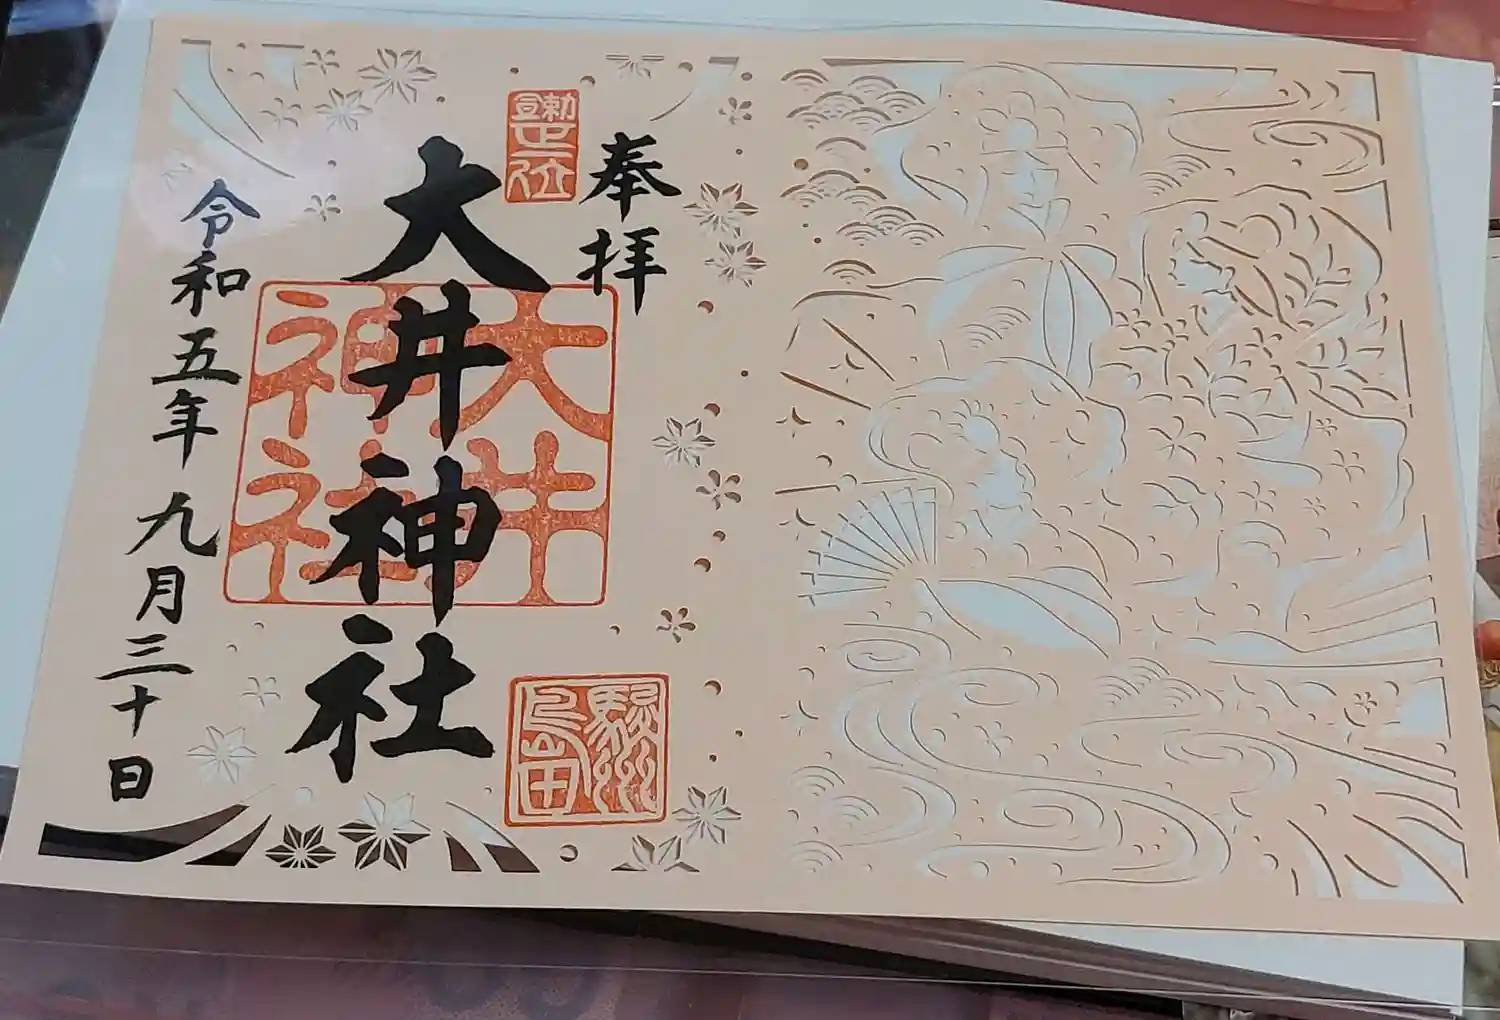 奉拝
勅宣正一位
大井神社
大井神社
駿州島田
令和五年九月三十日